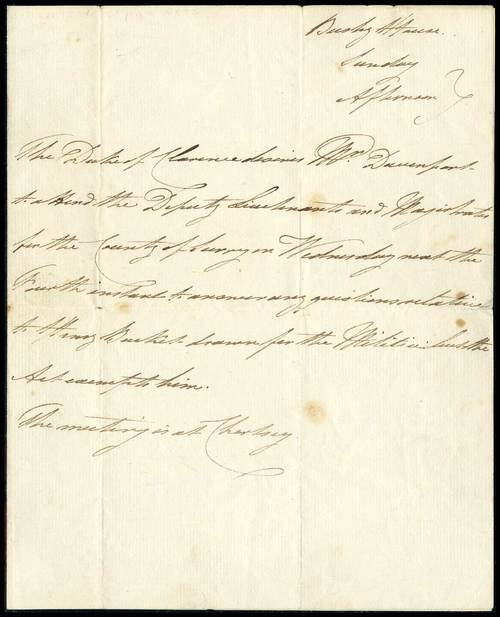 Bushy House.
Sunday
Afternoon
The Duke of Clarence desires Mr. Davenport
to attend the Deputy Lieutenants and Magistrates
for the County of Surrey on Wednesday next the
Fourth instant to answer any questions relative
to Henry drawn for the Militia but the
Act exempts him.
The meeting is at Chertsey